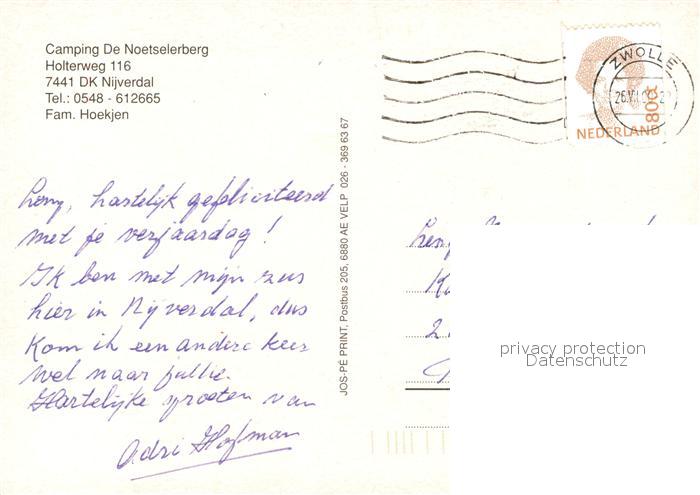 Camping De Noetselerberg
Holterweg 116
7441 DK Nijverdal
Tel.: 0548 - 612665
Fam. Hoekjen
ZWOLLE
80c
NEDERLAND
JOS-PÉ PRINT, Postbus 205, 6880 AE VELP 026 - 369 63 67
Leny, hartelijk gefeliciteerd
met je verjaardag!
Ik ben met mijn zus
hier in Nijverdal, dus
kom ik een andere keer
wel naar jullie.
Hartelijke groeten van
Adri Hofman
Leny
privacy protection
Datenschutz